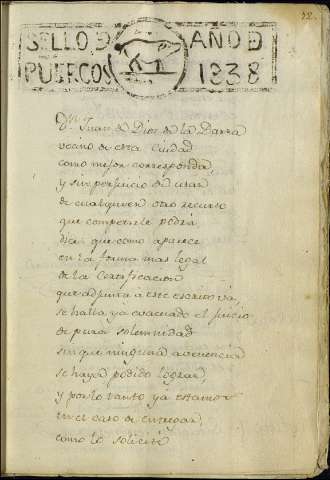 72.
SELLO D AÑO D
PUERCOS 1838
Dn. Juan d Dios de la Parra
vecino de esta ciudad
como mejor corresponda,
y sin perjuicio de usar
de cualquier otro recurso
que competirle podria
dice que como aparece
en la forma mas legal
de la Certificacion
que adjunta a este escrito va,
se halla ya evacuado el juicio
de pura solemnidad
sin que ninguna avenencia
se haya podido lograr,
y por lo tanto ya estamos
en el caso de entregar,
como lo solicité